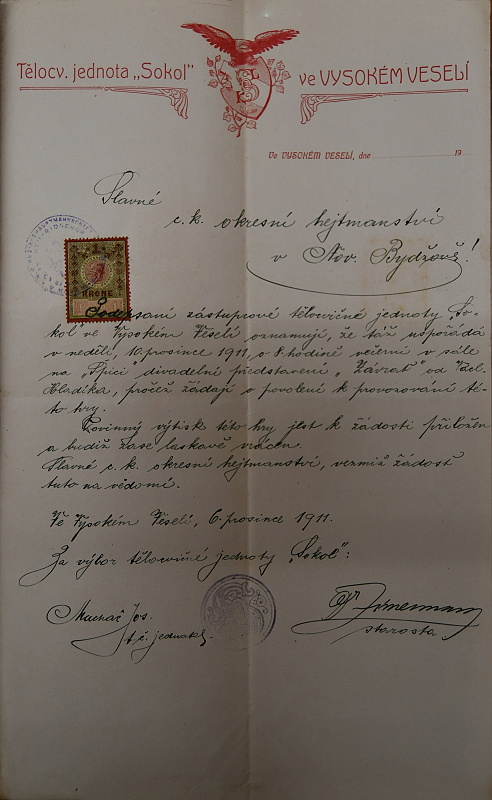 Tělocv. jednota „Sokol" ve VYSOKÉM VESELÍ
Ve VYSOKÉM VESELÍ, dne 19
Slavné
c. k. okresní hejtmanství
v Nov. Bydžově!
1
KRONE
Podepsaní zástupcové tělocvičné jednoty „So-
kol" ve Vysokém Veselí oznamují, že táž uspořádá
v neděli, 10. prosince 1911, o 8. hodině večerní v sále
na „Špici" divadelní představení „Závrať" od Václ.
Hladíka, pročež žádají o povolení k provozování té-
to hry.
Povinný výtisk této hry jest k žádosti přiložen
a budiž zase laskavě vrácen.
Slavné c. k. okresní hejtmanství, vezmiž žádost
tuto na vědomí.
Ve Vysokém Veselí, 6. prosince 1911.
Za výbor tělocvičné jednoty „Sokol":
Jos.
t. č. jednatel.
starosta.